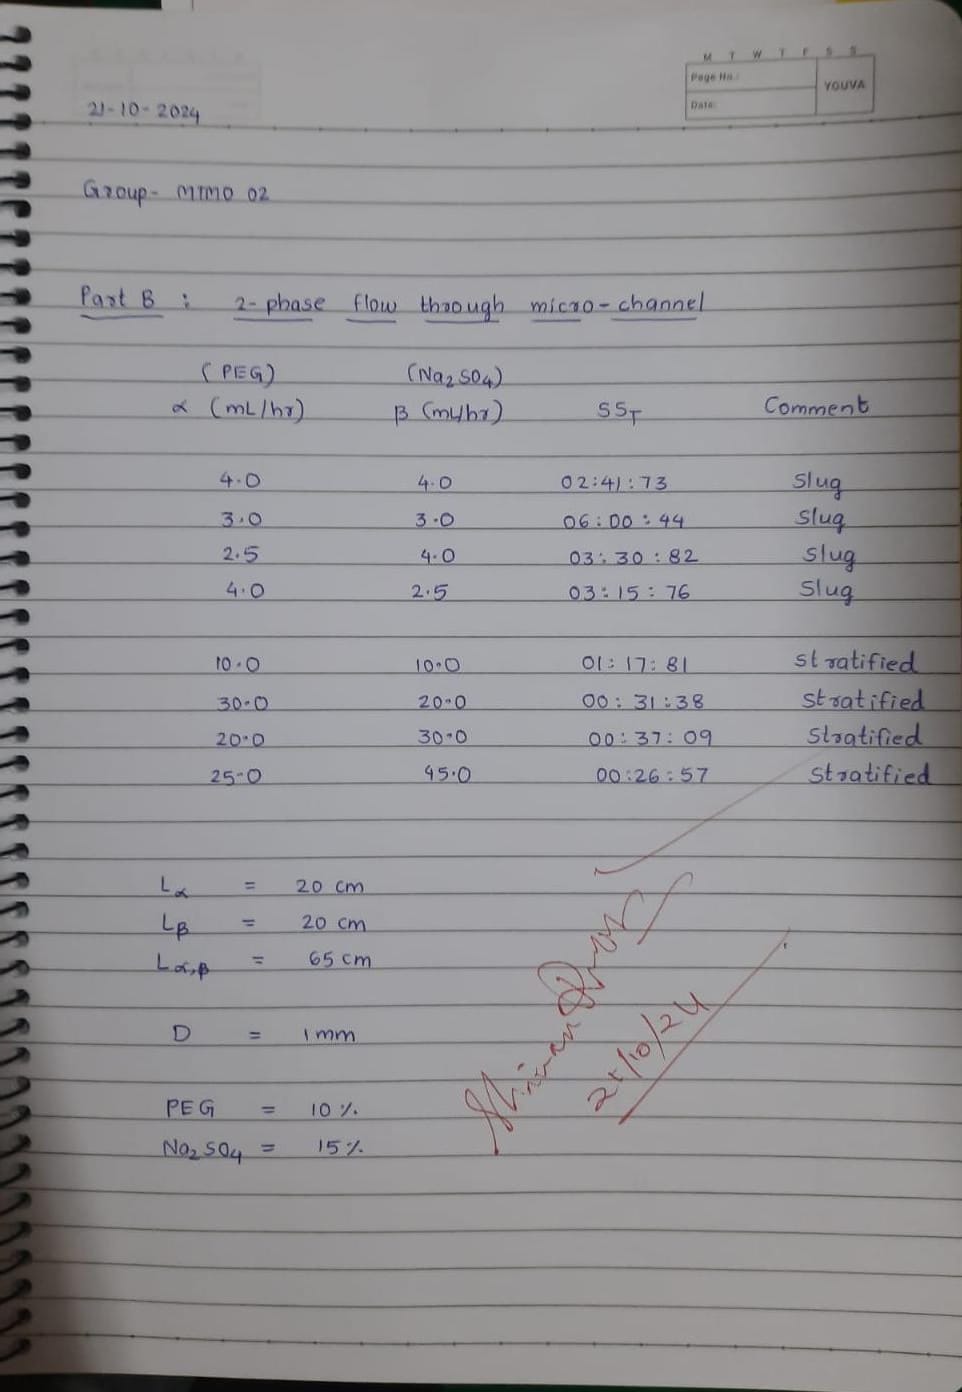 M T W T F S S
Page No.:
YOUVA
Date:
21-10-2024
Group- MTMO 02
Part B : 2-phase flow through micro-channel
(PEG) (Na2SO4)
α (mL/hr) β (mL/hr) SST Comment
4.0 4.0 02:41:73 Slug
3.0 3.0 06:00:44 Slug
2.5 4.0 03:30:82 Slug
4.0 2.5 03:15:76 Slug
10.0 10.0 01:17:81 Stratified
30.0 20.0 00:31:38 Stratified
20.0 30.0 00:37:09 Stratified
25.0 45.0 00:26:57 Stratified
Lα = 20 cm
Lβ = 20 cm
Lα,β = 65 cm
D = 1 mm
PEG = 10 %.
Na2SO4 = 15 %.
21/10/24